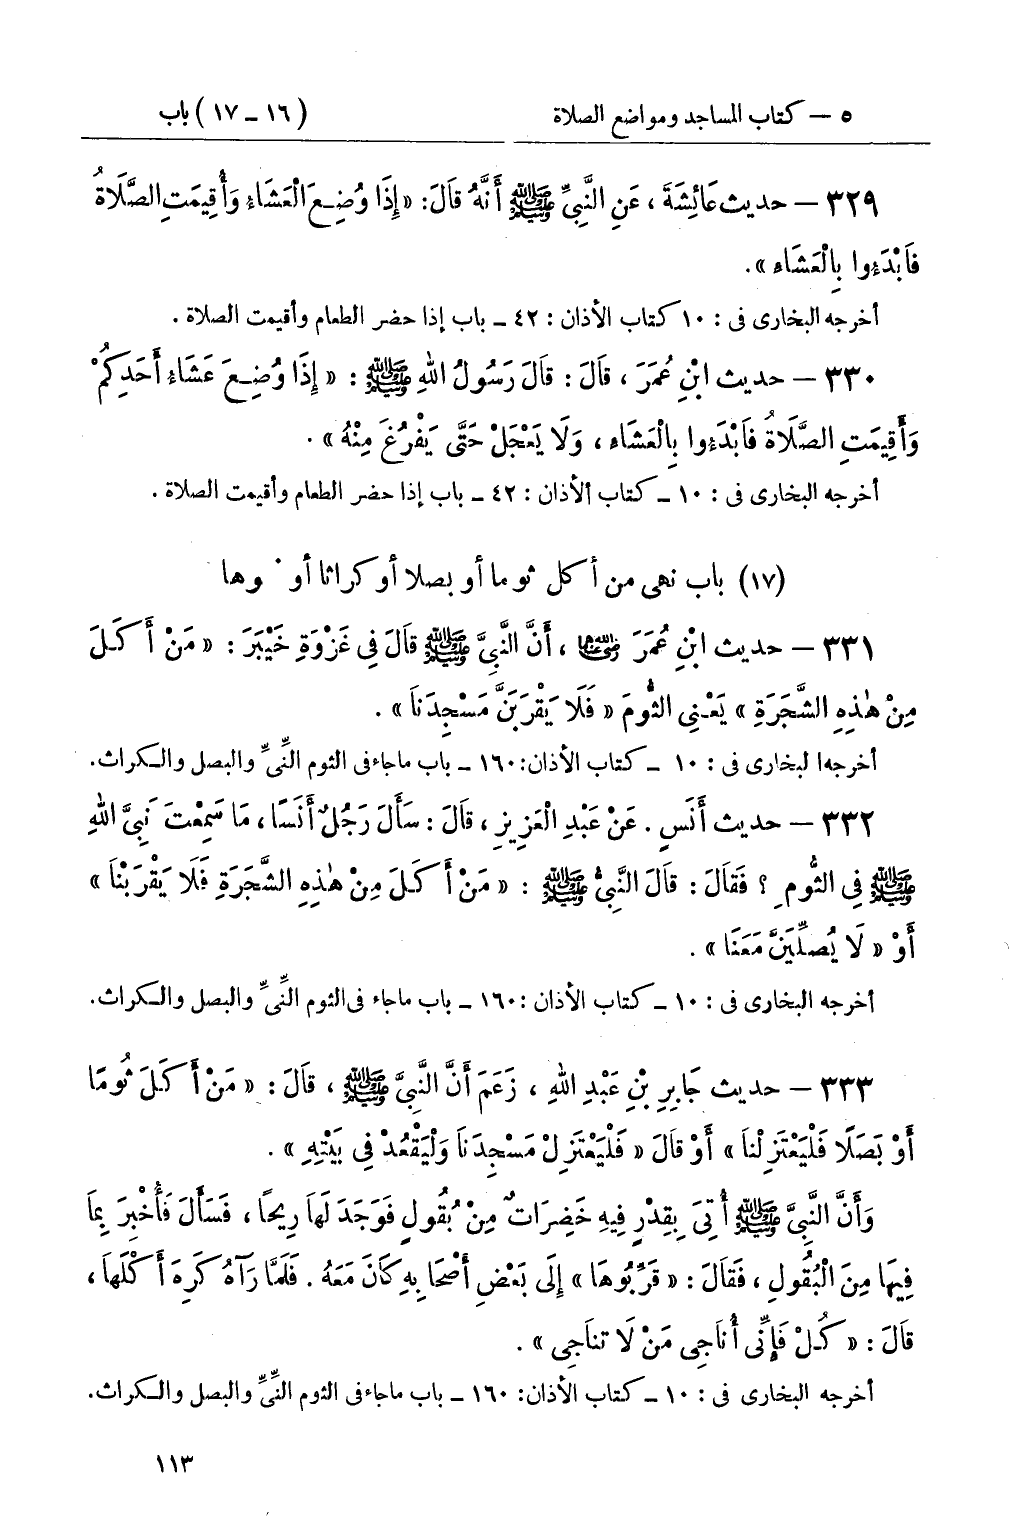 ٥ – كتاب المساجد ومواضع الصلاة (١٦ – ١٧) باب
٣٢٩ – حديث عَائِشَةَ ، عَنِ النَّبِيِّ ﷺ أَنَّهُ قَالَ : « إِذَا وُضِعَ الْعَشَاءُ وَأُقِيمَتِ الصَّلَاةُ
فَابْدَءُوا بِالْعَشَاءِ » .
أخرجه البخارى فى : ١٠ كتاب الأذان : ٤٢ – باب إذا حضر الطعام وأقيمت الصلاة .
٣٣٠ – حديث ابْنِ عُمَرَ ، قَالَ : قَالَ رَسُولُ اللهِ ﷺ : « إِذَا وُضِعَ عَشَاءُ أَحَدِكُمْ
وَأُقِيمَتِ الصَّلَاةُ فَابْدَءُوا بِالْعَشَاءِ ، وَلَا يَعْجَلْ حَتَّى يَفْرُغَ مِنْهُ » .
أخرجه البخارى فى : ١٠ – كتاب الأذان : ٤٢ – باب إذا حضر الطعام وأقيمت الصلاة .
(١٧) باب نهى من أكل ثوما أو بصلا أو كراثا أو
٣٣١ – حديث ابْنِ عُمَرَ رضي الله عنهما ، أَنَّ النَّبِيَّ ﷺ قَالَ فِى غَزْوَةِ خَيْبَرَ : « مَنْ أَكَلَ
مِنْ هٰذِهِ الشَّجَرَةِ » يَعْنِى الثُّومَ « فَلَا يَقْرَبَنَّ مَسْجِدَنَا » .
أخرجه البخارى فى : ١٠ – كتاب الأذان: ١٦٠ – باب ماجاء فى الثوم النِّىِّ والبصل والكراث.
٣٣٢ – حديث أَنَسٍ . عَنْ عَبْدِ الْعَزِيزِ ، قَالَ : سَأَلَ رَجُلٌ أَنَسًا ، مَا سَمِعْتَ نَبِيَّ اللهِ
ﷺ فِى الثُّومِ ؟ فَقَالَ : قَالَ النَّبِيُّ ﷺ : « مَنْ أَكَلَ مِنْ هٰذِهِ الشَّجَرَةِ فَلَا يَقْرَبْنَا »
أَوْ « لَا يُصَلِّيَنَّ مَعَنَا » .
أخرجه البخارى فى : ١٠ – كتاب الأذان : ١٦٠ – باب ماجاء فى الثوم النِّىِّ والبصل والكراث.
٣٣٣ – حديث جَابِرِ بْنِ عَبْدِ اللهِ ، زَعَمَ أَنَّ النَّبِيَّ ﷺ ، قَالَ : « مَنْ أَكَلَ ثُومًا
أَوْ بَصَلًا فَلْيَعْتَزِلْنَا » أَوْ قَالَ « فَلْيَعْتَزِلْ مَسْجِدَنَا وَلْيَقْعُدْ فِى بَيْتِهِ » .
وَأَنَّ النَّبِيَّ ﷺ أُتِىَ بِقِدْرٍ فِيهِ خَضِرَاتٌ مِنْ بُقُولٍ فَوَجَدَ لَهَا رِيحًا ، فَسَأَلَ فَأُخْبِرَ بِمَا
فِيهَا مِنَ الْبُقُولِ ، فَقَالَ : « قَرِّبُوهَا » إِلَى بَعْضِ أَصْحَابِهِ كَانَ مَعَهُ . فَلَمَّا رَآهُ كَرِهَ أَكْلَهَا ،
قَالَ : « كُلْ فَإِنِّى أُنَاجِى مَنْ لَا تنَاجِى » .
أخرجه البخارى فى : ١٠ – كتاب الأذان: ١٦٠ – باب ماجاء فى الثوم النِّىِّ والبصل والكراث.
١١٣